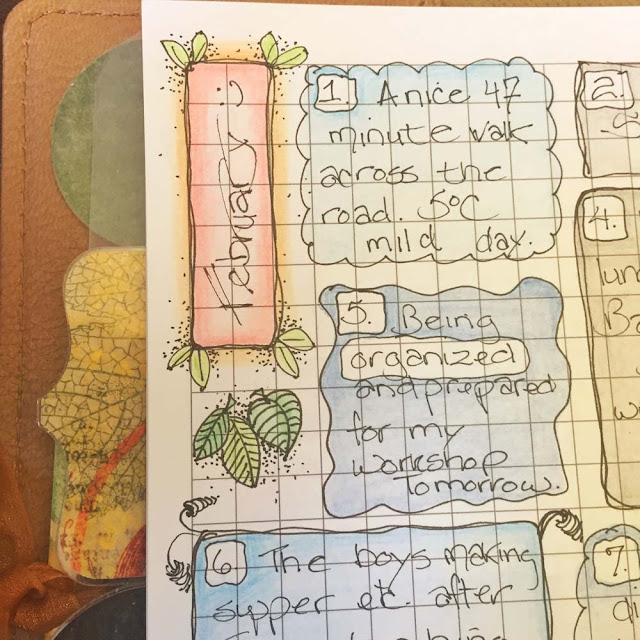 February
1. A nice 47
minute walk
across the
road. 5°C
mild day.
2.
4.
5. Being
organized
and prepared
for my
workshop
tomorrow.
6 The boys making
supper etc. after
7.